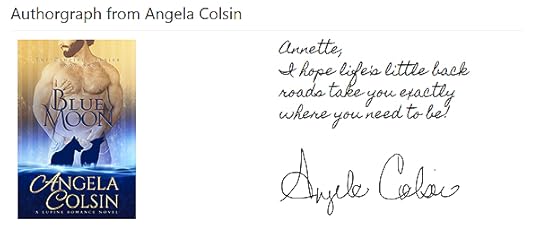 Authorgraph from Angela Colsin
BLUE
MOON
ANGELA
COLSIN
A LUPINE ROMANCE NOVEL
Annette,
I hope life's little back
roads take you exactly
where you need to be!
Angela Colsin